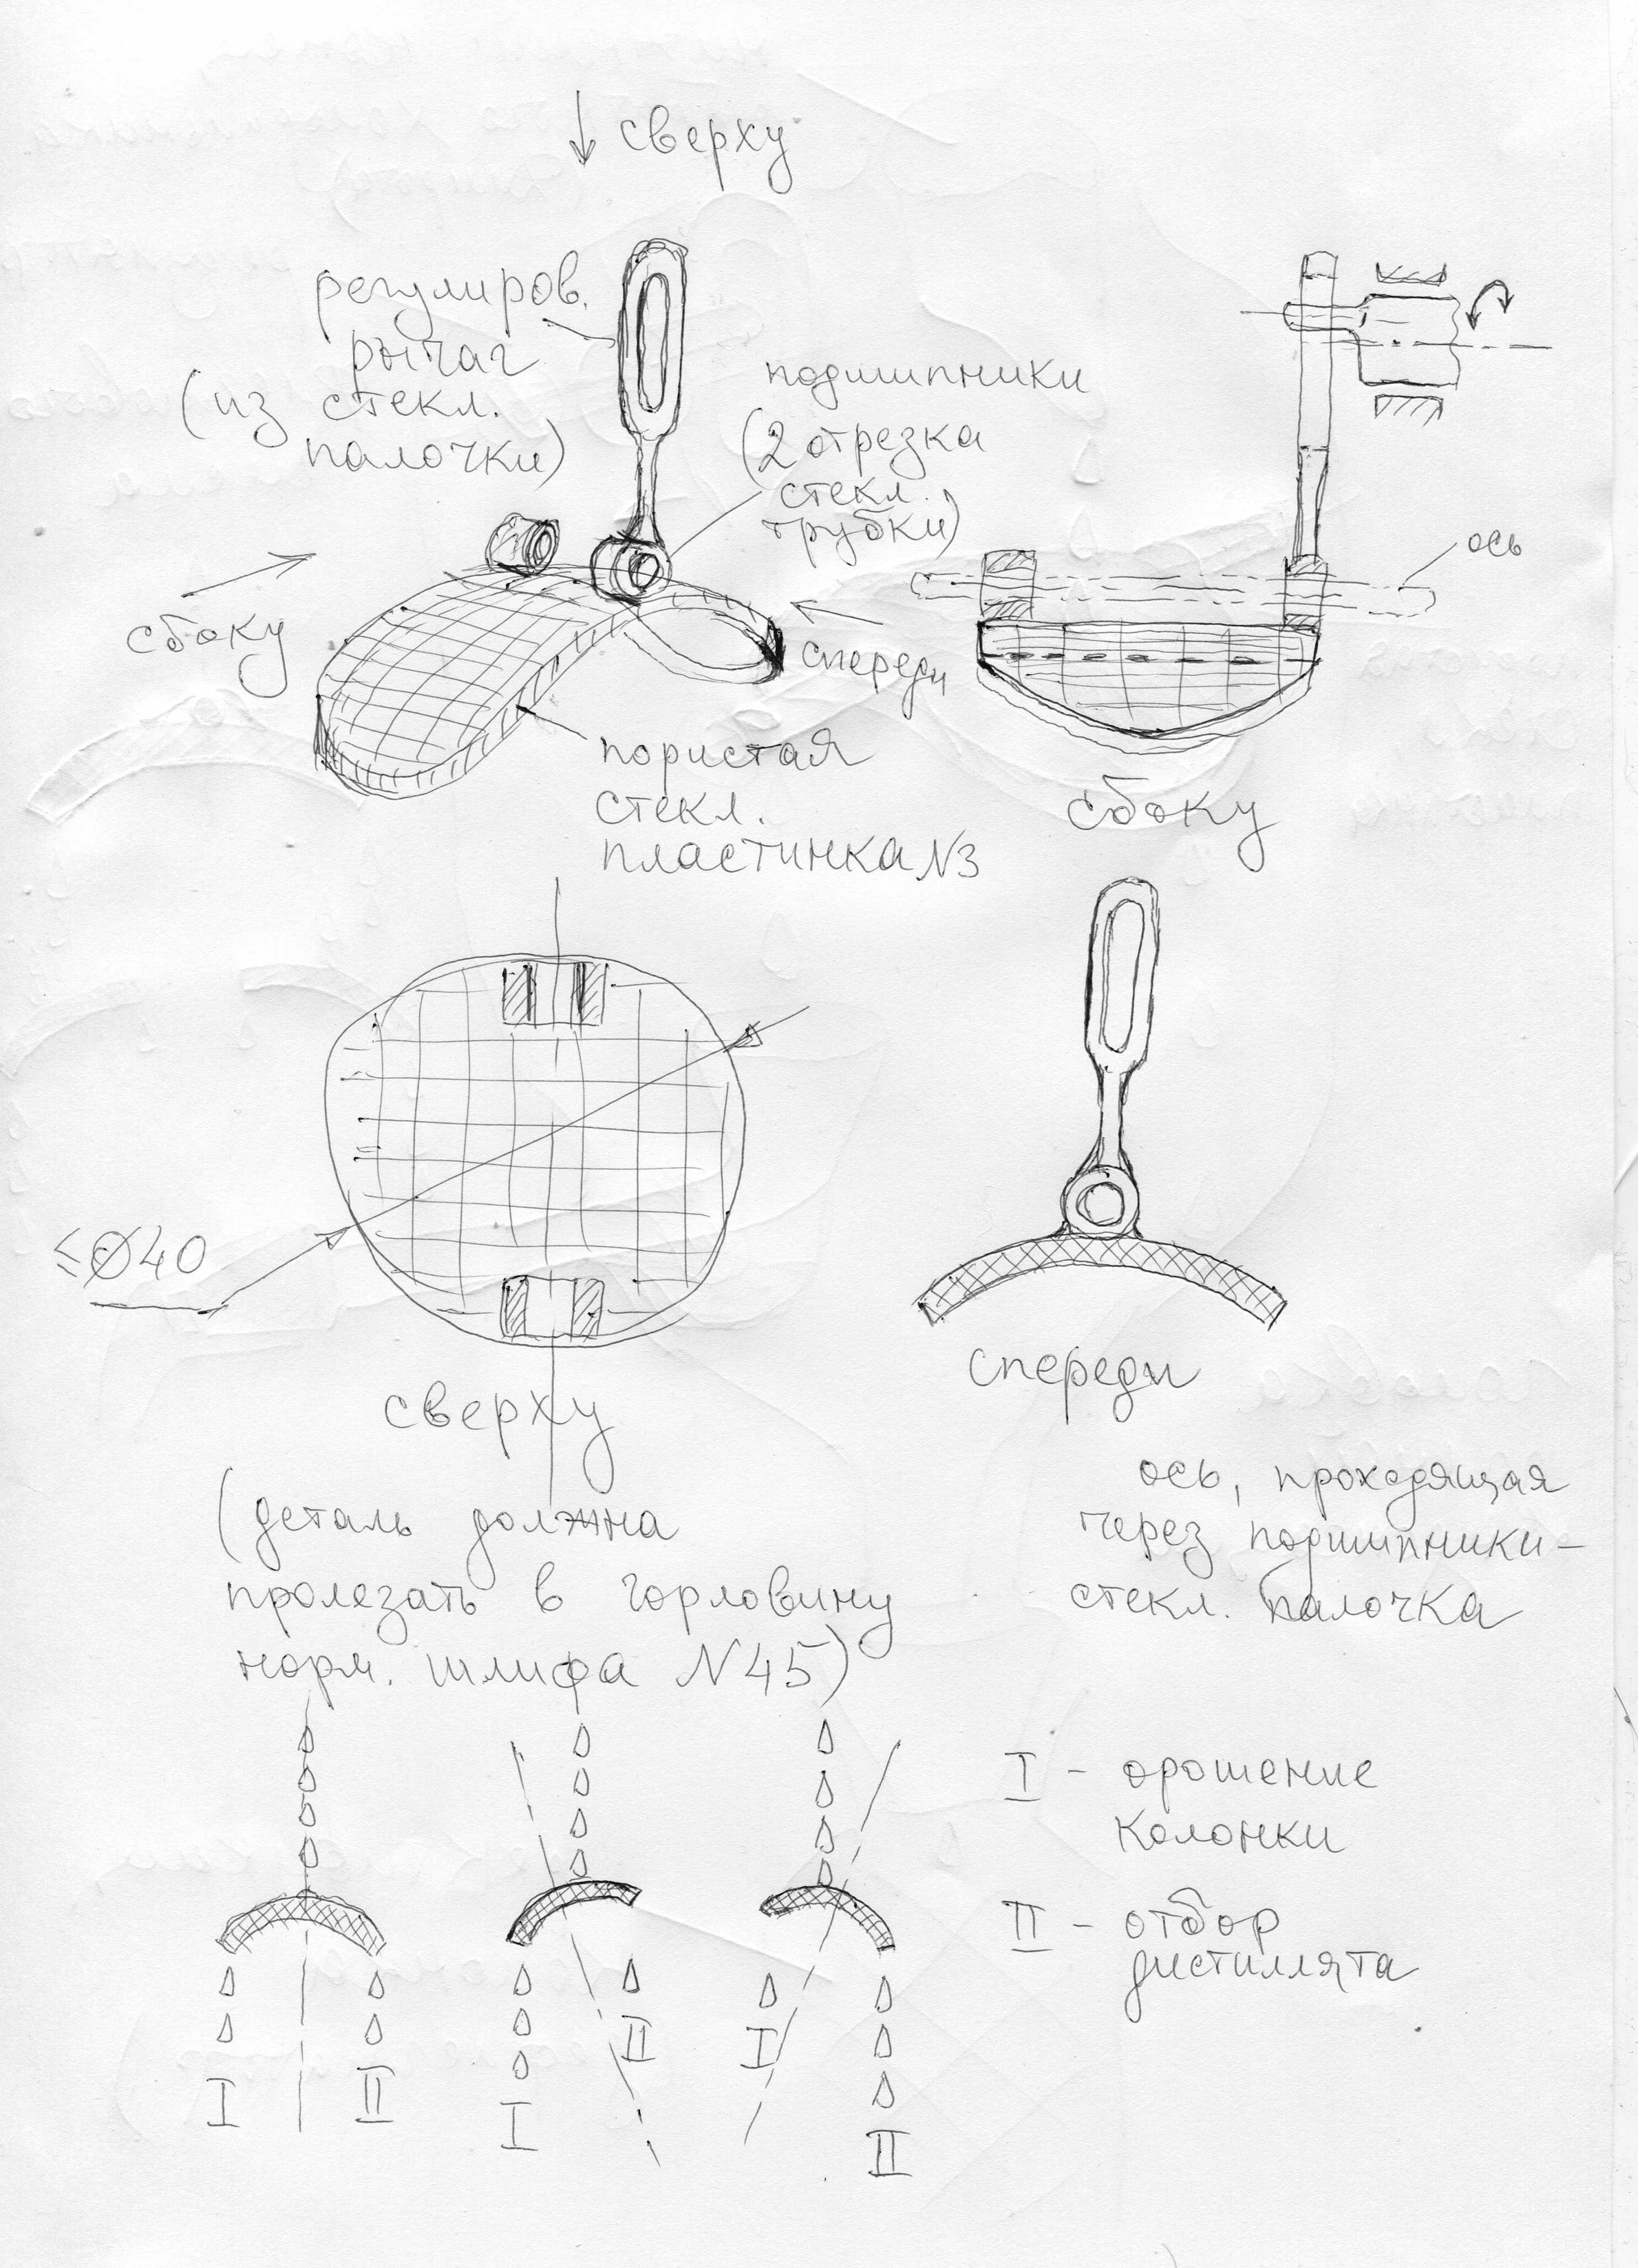 сверху
регулиров.
рычаг
(из стекл.
палочки)
подшипники
(2 отрезка
стекл.
трубки)
ось
сбоку
спереди
пористая
стекл.
пластинка N3
сбоку
≤Ø40
сверху
(деталь должна
пролезать в горловину
норм. шлифа N45)
спереди
ось, проходящая
через подшипники –
стекл. палочка
I - орошение
колонки
II - отбор
дистиллята
I II
I II
I II